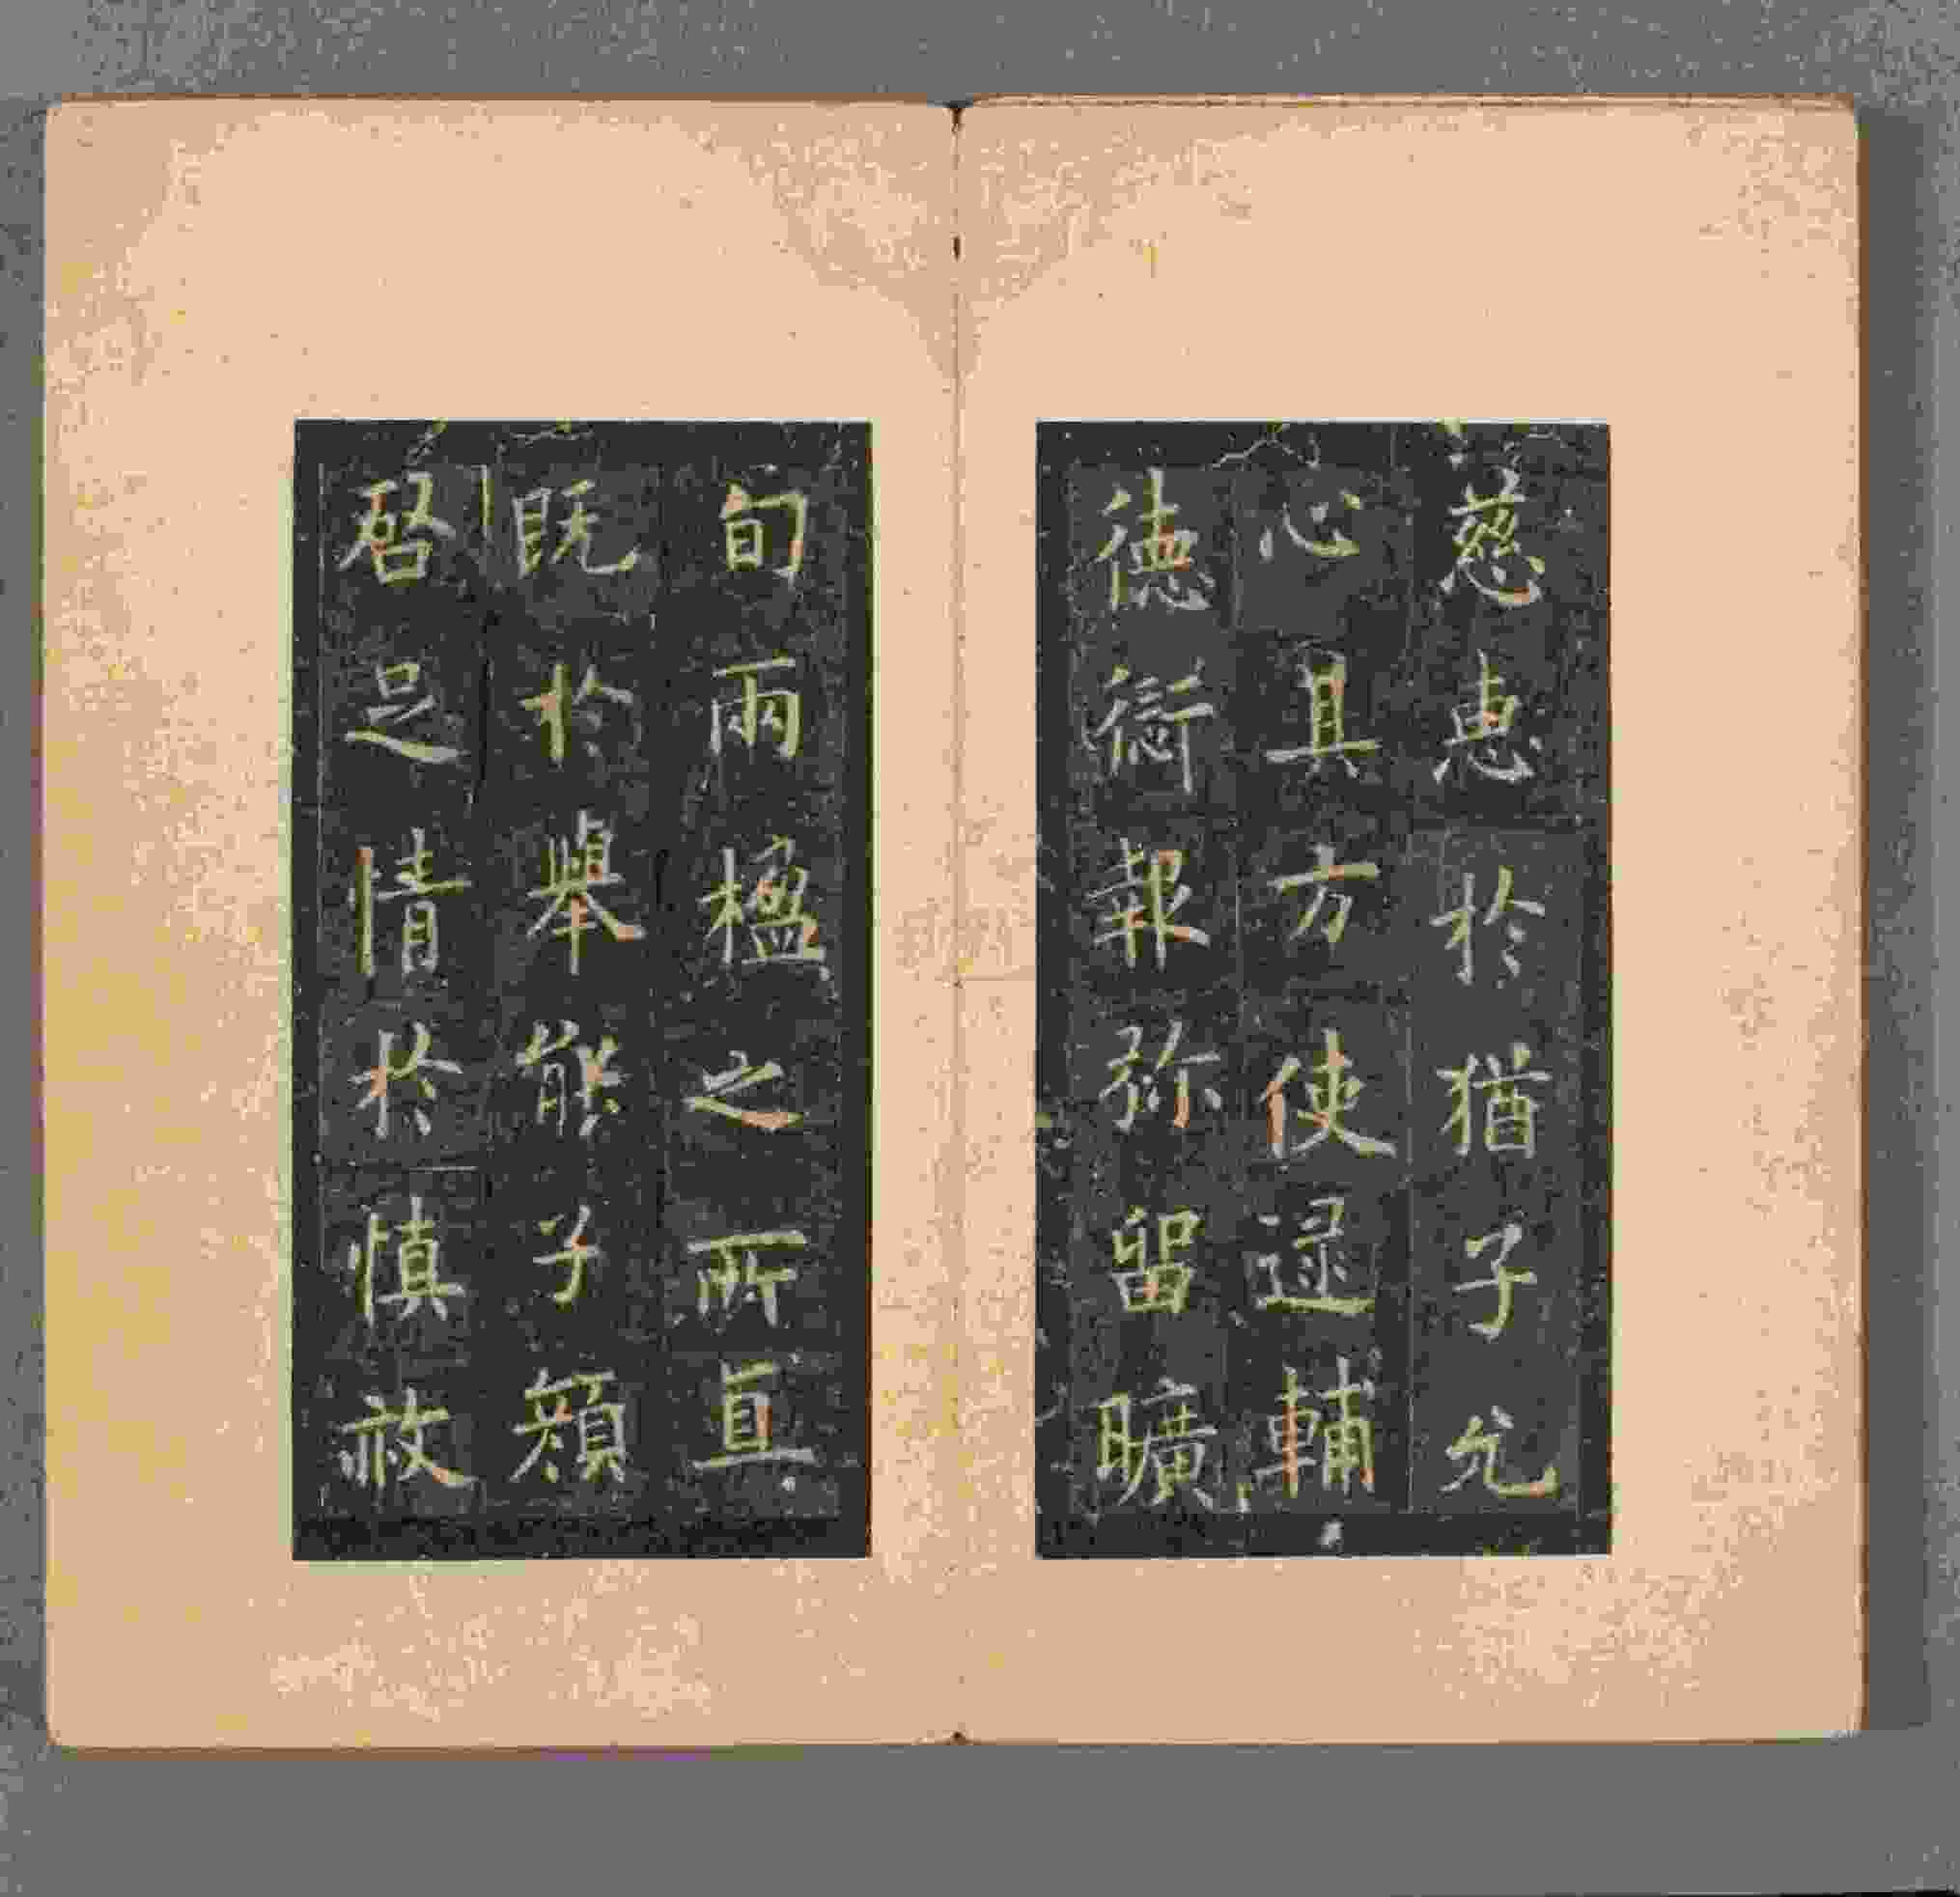 慈惠於猶子允
心具方使逯輔
德愆報弥留曠
旬兩楹之所真
既於舉能子顏
啓足情於慎赦